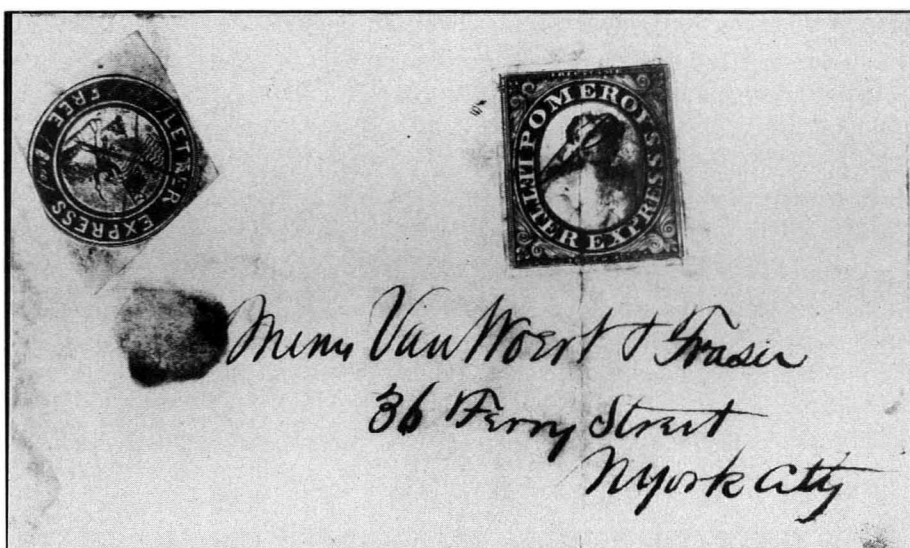 LETTER EXPRESS
FREE
POMEROY'S
LETTER EXPRESS
Messrs Van Woert & Fraser
36 Ferry Street
NYork City